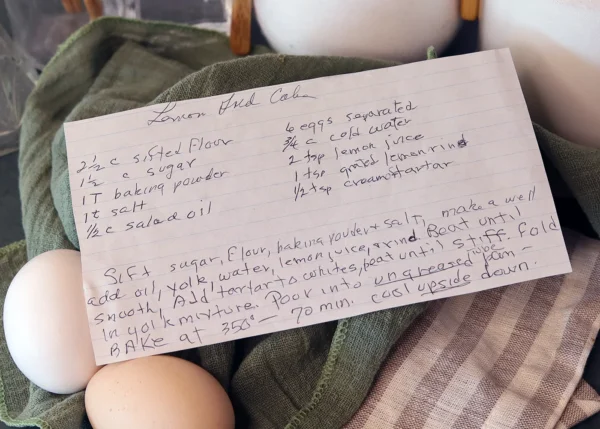 Lemon Cake
2 1/2 c sifted flour
1 1/2 c sugar
1 T baking powder
1 t salt
1/2 c salad oil
6 eggs separated
3/4 c cold water
2 tsp lemon juice
1 tsp grated lemon rind
1/2 tsp cream tartar
Sift sugar, flour, baking powder + salt, make a well
add oil, yolk, water, lemon juice, rind Beat until
smooth, Add tartar to whites, beat until stiff. Fold
in yolk mixture. Poor into ungreased tube pan -
BAKe at 350° - 70 min. cool upside down.